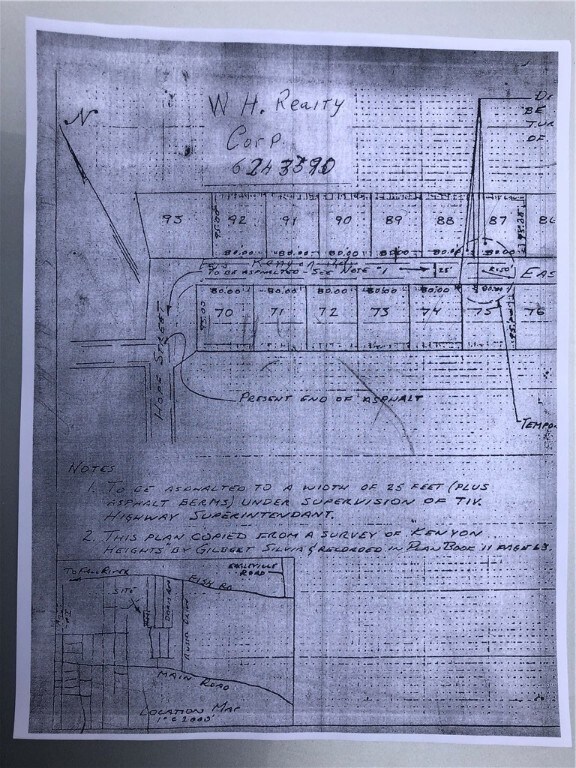 N
W H. Realty
Corp.
6243390
BE
TUR
OF
93
92
91
90
89
88
87
86
95.00
80.00 80.00 80.00 80.00 80.00 80.00
TO BE ASPHALTED - SEE NOTE 1
25'
R=50'
EAS
80.00 80.00 80.00 80.00 80.00 80.00
95.00
70
71
72
73
74
75
76
HOPE STREET
PRESENT END OF ASPHALT
TEMPO
NOTES
1. TO BE ASPHALTED TO A WIDTH OF 25 FEET (PLUS
ASPHALT BERMS) UNDER SUPERVISION OF TIV.
HIGHWAY SUPERINTENDANT.
2. THIS PLAN COPIED FROM A SURVEY OF KENYON
HEIGHTS BY GILBERT SILVIA & RECORDED IN PLAN BOOK 11 PAGE 63.
TO FALL RIVER
EAGLEVILLE
ROAD
FISH RD
SITE
MAIN ROAD
LOCATION MAP
1" = 2000'